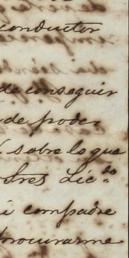 conductor
de conseguir
de poder
sobre lo que
Sres Licdo
mi compadre
procurarme